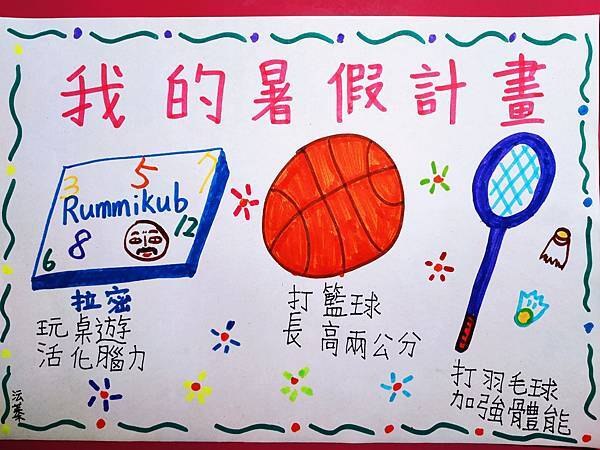 我的暑假計畫
3 5 7
Rummikub
6 8 12
拉密
玩桌遊
活化腦力
打籃球
長高兩公分
打羽毛球
加強體能